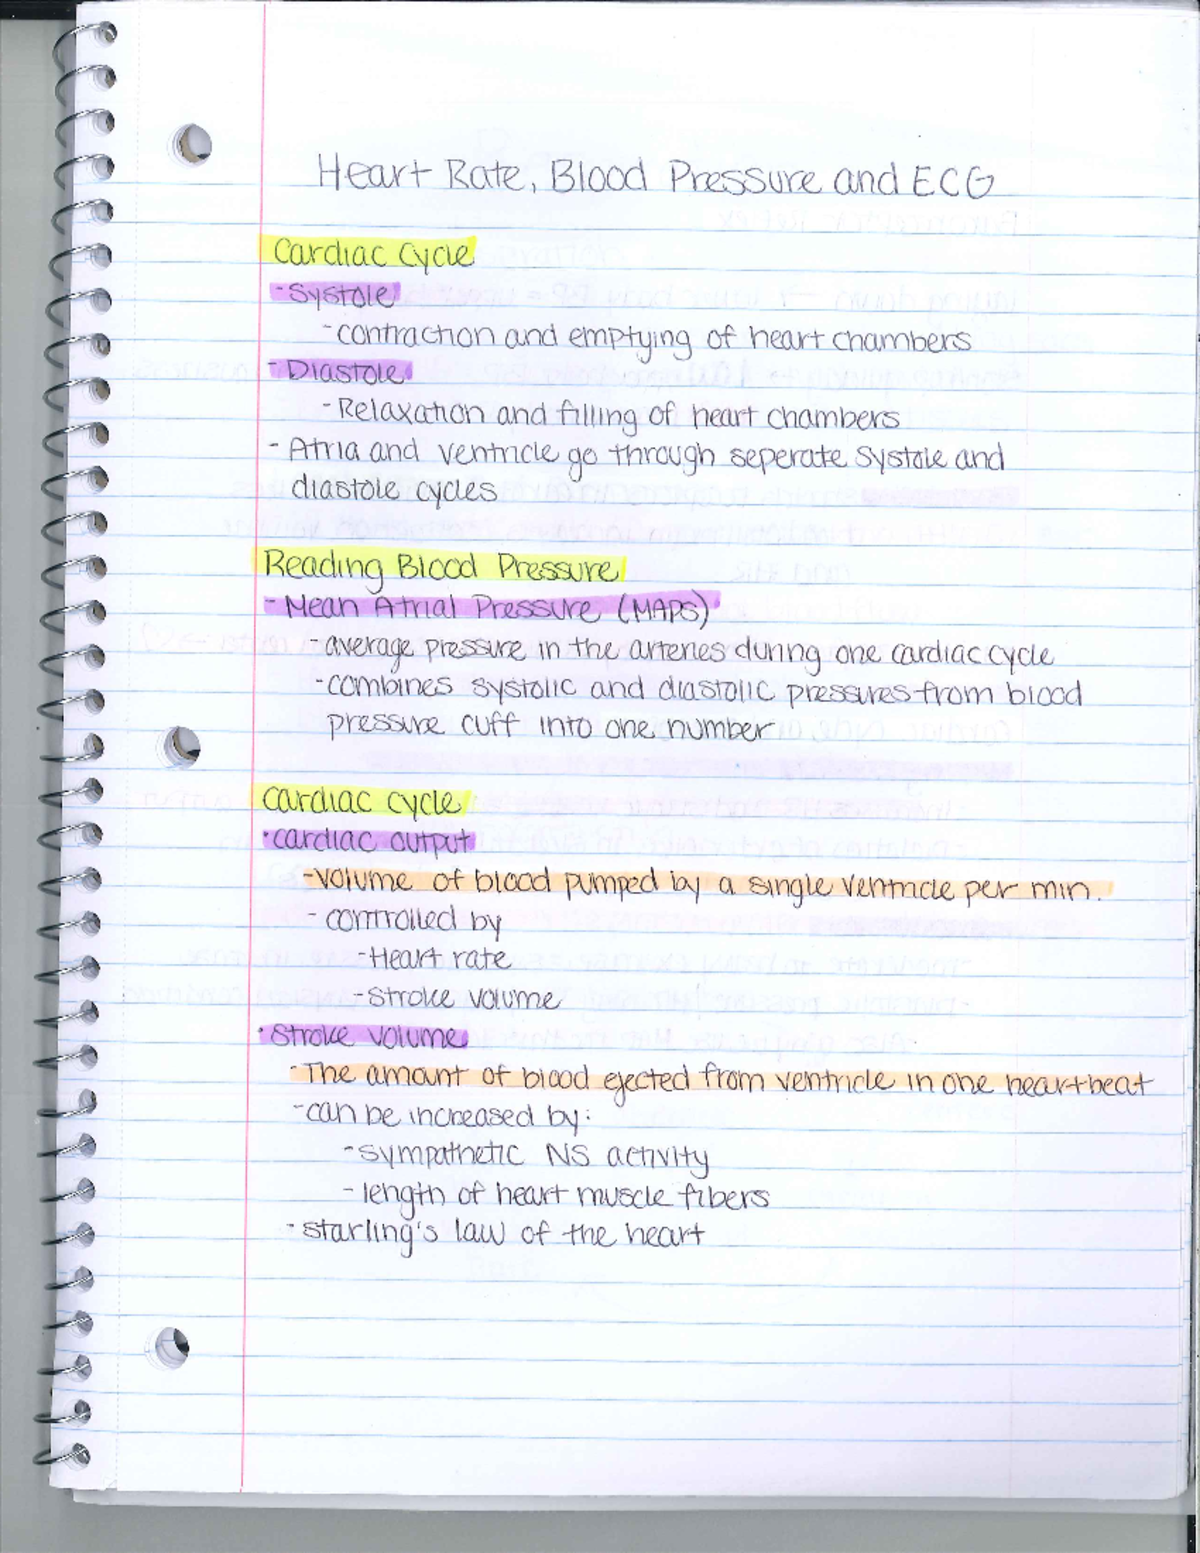 Heart Rate, Blood Pressure and ECG
Cardiac Cycle
- Systole
- contraction and emptying of heart chambers
- Diastole
- Relaxation and filling of heart chambers
- Atria and ventricle go through seperate systole and
diastole cycles
Reading Blood Pressure
- Mean Atrial Pressure (MAPS)
- average pressure in the arteries during one cardiac cycle
- combines systolic and diastolic pressures from blood
pressure cuff into one number
Cardiac cycle
· cardiac output
- volume of blood pumped by a single ventricle per min.
- controlled by
- Heart rate
- stroke volume
· Stroke volume
- The amount of blood ejected from ventricle in one heartbeat
- can be increased by:
- sympathetic NS activity
- length of heart muscle fibers
- starling's law of the heart